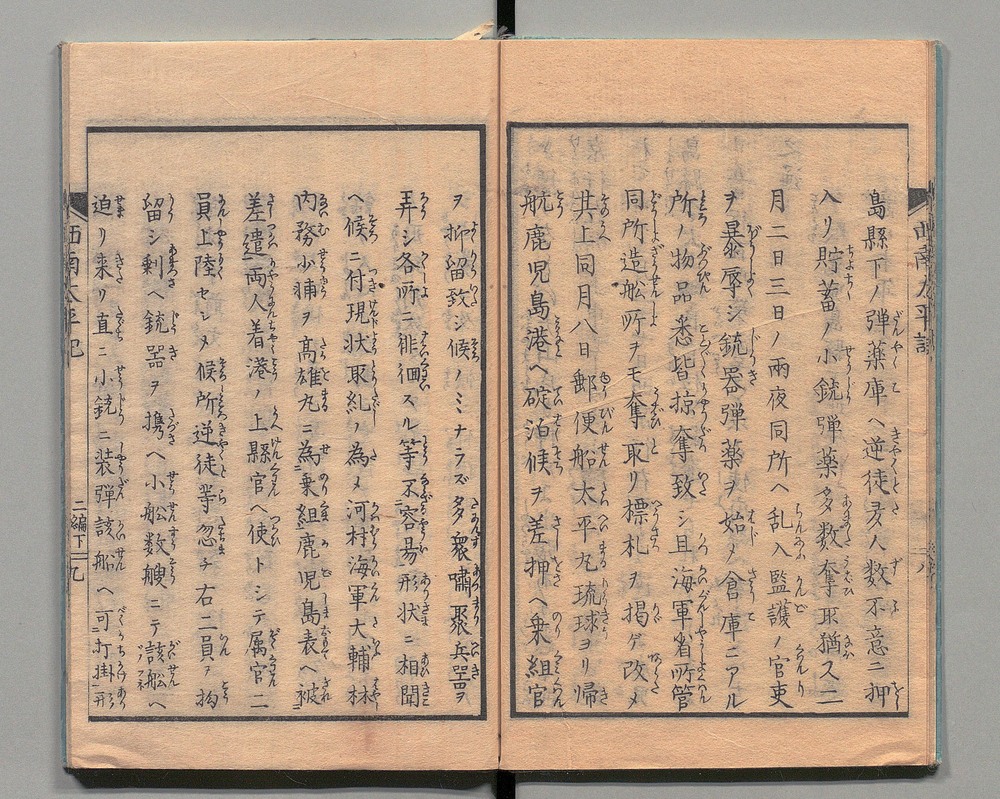 島縣下ノ弾薬庫ヘ逆徒数人数不意ニ押
入リ貯蓄ノ小銃弾薬多数奪取猶ス二
月二日三日ノ兩夜同所ヘ乱入監護ノ官吏
ヲ暴辱シ銃器弾薬ヲ始メ倉庫ニアル
所ノ物品悉皆掠奪致シ且海軍省所管
同所造舩所ヲモ奪取リ標札ヲ掲ゲ改メ
其上同月八日郵便船太平丸琉球ヨリ帰
航鹿児島港ヘ碇泊候ヲ差押ヘ乗組官
ヲ抑留致シ候ノミナラズ多衆嘯聚兵器ヲ
弄シ各所ニ徘徊スル等不容易形状ニ相聞
ヘ候ニ付現状取糺ノ為メ河村海軍大輔林
内務少輔ヲ高雄丸ニ為乗組鹿児島表ヘ被
差遣両人着港ノ上縣官ヘ使トシテ属官二
員上陸セシメ候所逆徒等忽チ右二員ヲ拘
留シ剰ヘ銃器ヲ携ヘ小舩数艘ニテ該舩ヘ
迫リ来リ直ニ小銃ニ装弾該船ヘ可打掛形
西南太平記
二編下
九